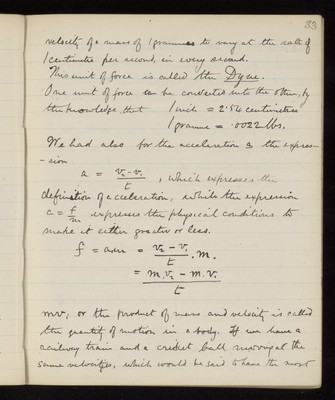 33
velocity of a mass of 1 gramme to vary at the rate of
1 centimetre per second, in every second.
This unit of force is called the Dyne.
One unit of force can be converted into the other, by
the knowledge that 1 inch = 2.54 centimetres
1 gramme = .0022 lbs.
We had also for the acceleration a the expres-
-sion
a = v₂ - v₁ / t , which expresses the
definition of acceleration, while the expression
a = f/m expresses the physical conditions to
make it either greater or less.
f = am = v₂ - v₁ / t . m.
= m.v₂ - m.v₁ / t
mv; or the product of mass and velocity is called
the quantity of motion in a body. If we have a
railway train and a cricket ball moving at the
same velocities, which would be said to have the most